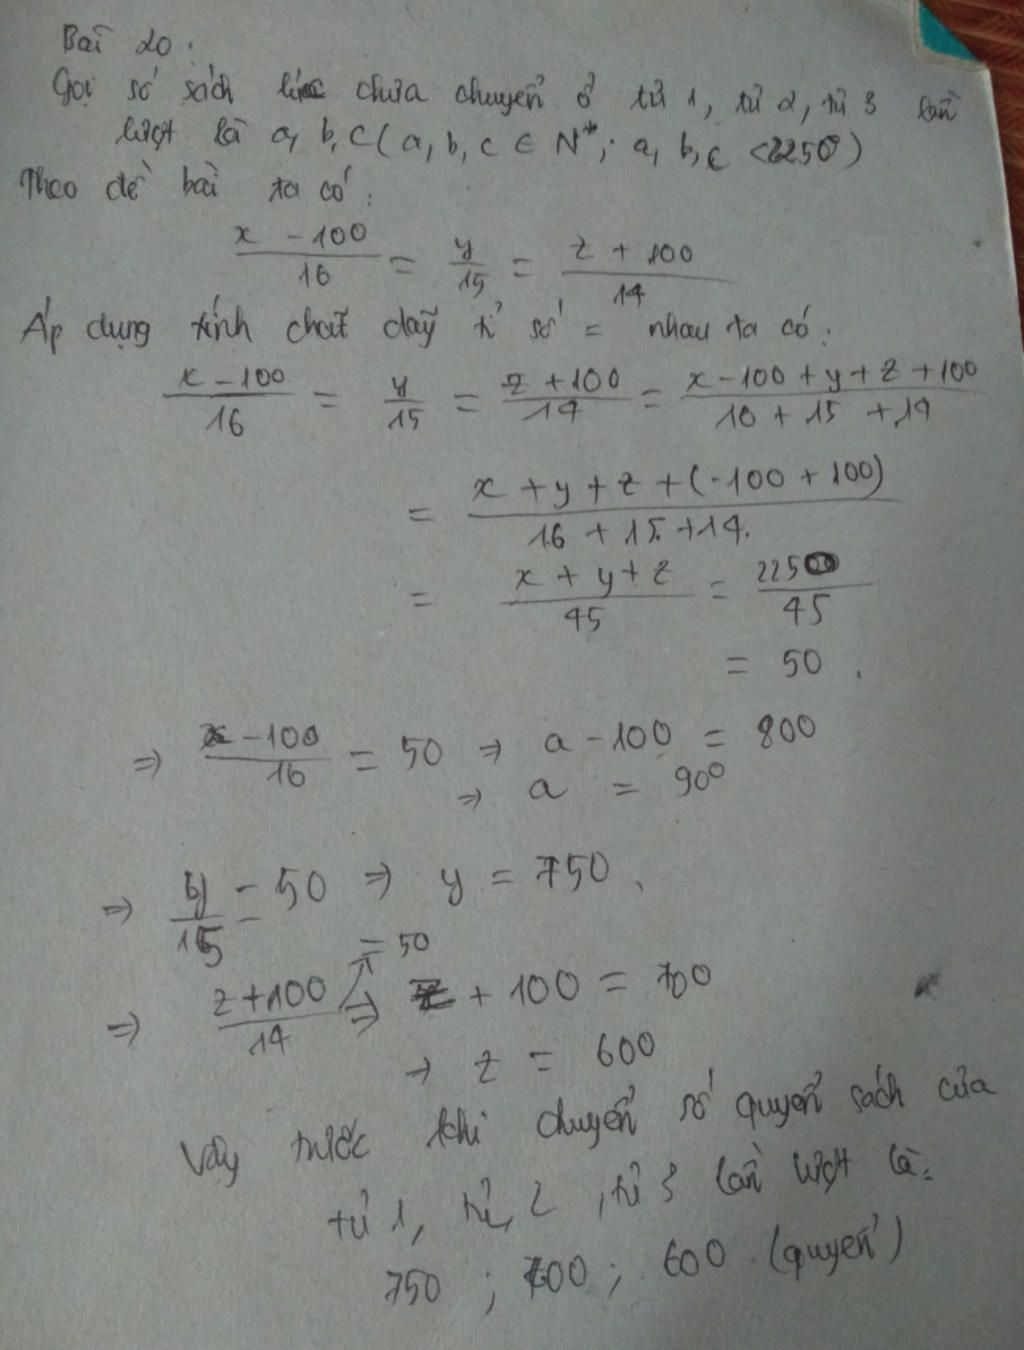 Bài 20.
Gọi số sách lúc chưa chuyển ở tủ 1, tủ 2, tủ 3 lần
lượt là a, b, c (a, b, c ∈ N*; a, b, c < 2250)
Theo đề bài ta có:
x - 100 / 16 = y / 15 = z + 100 / 14
Áp dụng tính chất dãy tỉ số = nhau ta có:
x - 100 / 16 = y / 15 = z + 100 / 14 = x - 100 + y + z + 100 / 16 + 15 + 14
= x + y + z + (-100 + 100) / 16 + 15 + 14.
= x + y + z / 45 = 2250 / 45
= 50.
⇒ x - 100 / 16 = 50 ⇒ a - 100 = 800
⇒ a = 900
⇒ y / 15 = 50 ⇒ y = 750
= 50
⇒ z + 100 / 14 ⇒ z + 100 = 700
→ z = 600
Vậy trước khi chuyển số quyển sách của
tủ 1, tủ, 2, tủ 3 lần lượt là:
750 ; 600 (quyển)